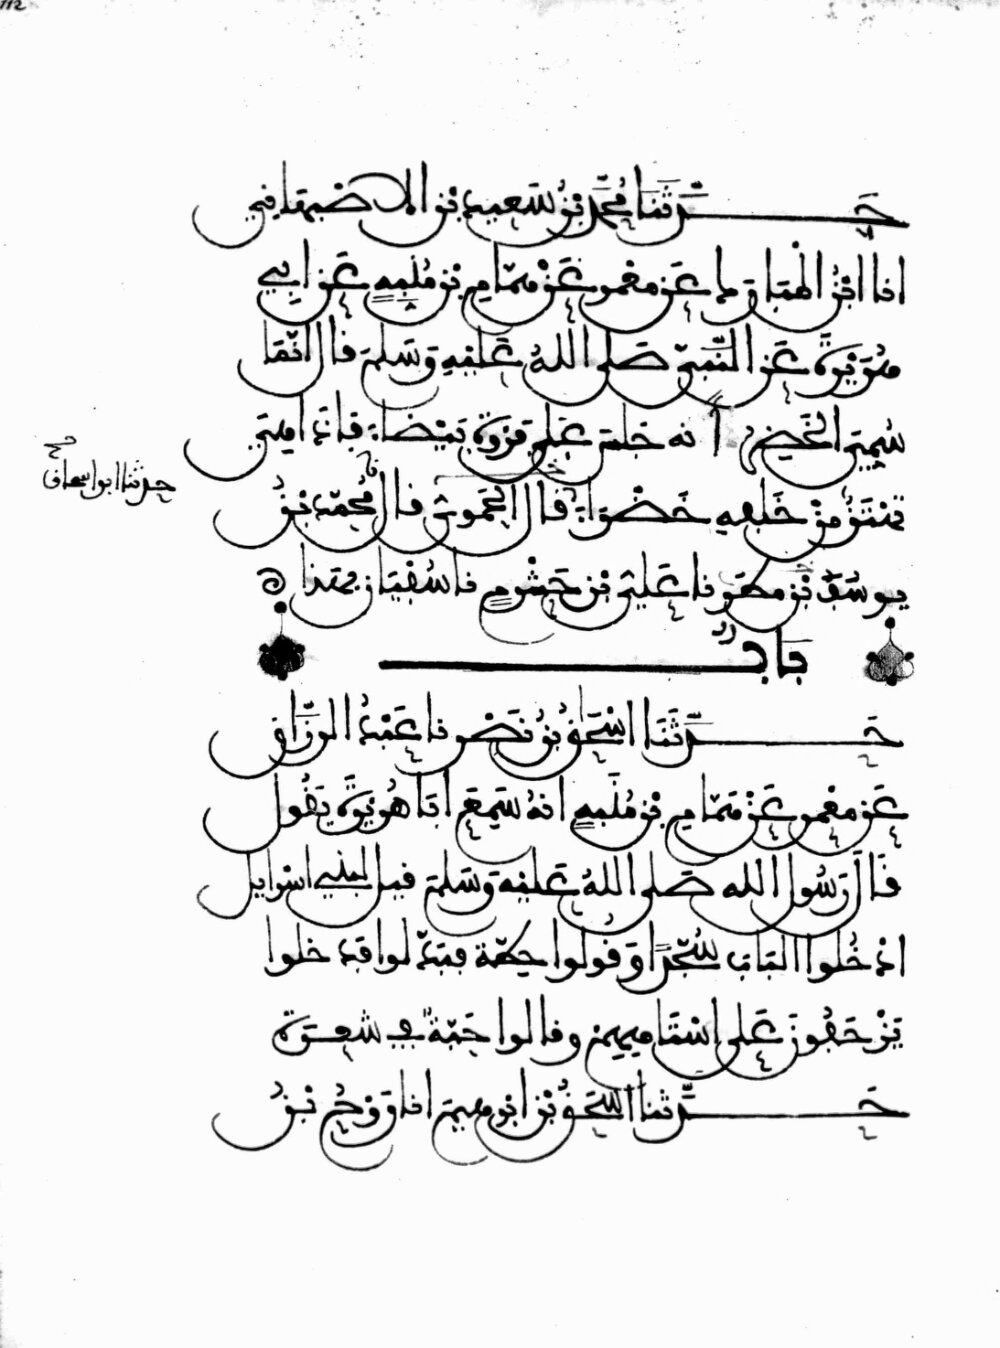 112
حَدَّثَنَا مُحَمَّدُ بْنُ سَعِيدِ بْنِ الاصْبِهَانِيِّ
انا ابْنُ الْمُبَارَكِ عَن مَعْمَرٍ عَنْ هَمَّامِ بْنِ مُنَبِّهٍ عَنْ ابِي
هُرَيْرَةَ عَنِ النَّبِيِّ صَلَّى اللهُ عَلَيْهِ وَسَلَّمَ قَالَ انَّمَا
سُمِّيَ الخَضِرُ أنه جَلَسَ عَلَى فَرْوَةٍ بَيْضَاءَ فَإذَا هِيَ
تَهْتَزُّ مِنْ خَلْفِهِ خَضْرَاءَ قَالَ الحَمُّويُّ قال مُحَمَّدُ بْنُ
يوسُفَ بْنِ مَطَرٍ نا عَلِيُّ بْنُ خَشْرَمٍ نا سُفْيَان بِهَذَا ه
حدثنا ابو اسحاق
صح
بَابٌ
حَدَّثَنَا اسْحَقُ بْنُ نَصْرٍ نا عَبْدُ الرزَّاقِ
عَن مَعْمَرٍ عَنْ هَمَّامِ بْنِ مُنَبِّهٍ انهُ سَمِعَ أَبَا هُرَيْرَةَ يَقُولُ
قَالَ رَسُولُ اللهِ صَلَّى اللهُ عَلَيْهِ وَسَلَّمَ قيلَ لِبَنِي اسْرايلَ
ادْخُلُوا البَابَ سُجَّدًا وَقُولُوا حِطَّة فَبَدَّلوا فَدَخلُوا
يَزْحَفُونَ عَلَى اسْتَاهِهِمْ وقالُوا حَبَّةٌ في شَعَرَةٍ
حَدَّثَنَا اسْحَقُ بْنُ ابْرهِيمَ انا رَوْحُ بْنُ